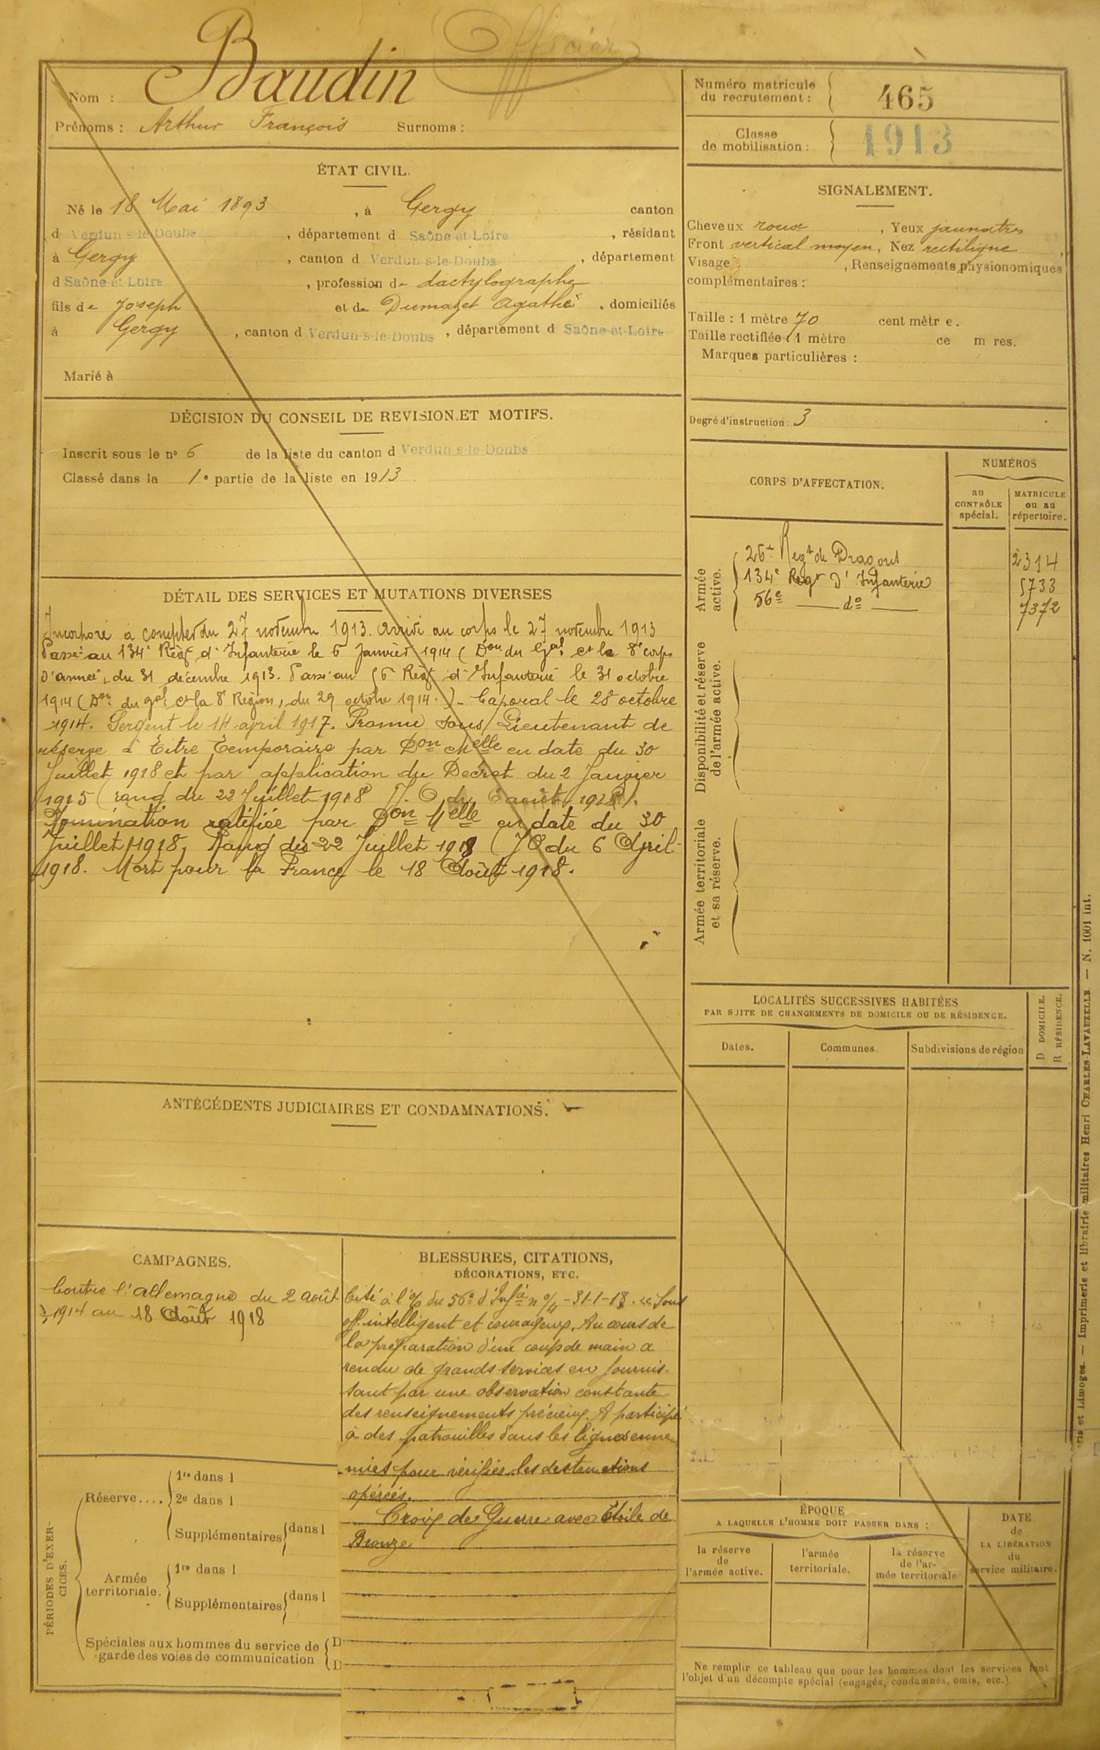 Officier
Nom : Baudin
Prénoms : Arthur François Surnoms :
Numéro matricule du recrutement : 465
Classe de mobilisation : 1913
ÉTAT CIVIL.
Né le 18 Mai 1893, à Gergy canton
d Verdun-s-le-Doubs, département d Saône-et-Loire, résidant
à Gergy, canton d Verdun-s-le-Doubs, département
d Saône-et-Loire, profession de dactylographe
fils de Joseph et de Dumazet Agathe, domiciliés
à Gergy, canton d Verdun-s-le-Doubs, département d Saône-et-Loire
Marié à
SIGNALEMENT.
Cheveux roux, Yeux jaunatres
Front vertical moyen, Nez rectiligne,
Visage , Renseignements physionomiques
complémentaires :
Taille : 1 mètre 70 cent mètr e.
Taille rectifiée : 1 mètre ce m res.
Marques particulières :
Degré d'instruction : 3
DÉCISION DU CONSEIL DE REVISION ET MOTIFS.
Inscrit sous le nº 6 de la liste du canton d Verdun-s-le-Doubs
Classé dans la 1e partie de la liste en 1913
DÉTAIL DES SERVICES ET MUTATIONS DIVERSES
Incorporé à compter du 27 novembre 1913. Arrivé au corps le 27 novembre 1913
Passé au 134e Régt d'Infanterie le 6 Janvier 1914 (Don du Gal Ct le 8e corps
d'armée, du 31 décembre 1913. Passé au 56 Régt d'Infanterie le 31 octobre
1914 (Don du gal Ct la 8e Région, du 29 octobre 1914.) Caporal le 28 octobre
1914. Sergent le 14 avril 1917. Promu Sous Lieutenant de
réserve à titre temporaire par Don Melle en date du 30
Juillet 1918 et par application du Décret du 2 Janvier
1915 (rang du 22 Juillet 1918 J.O du 6 août 1918).
Nomination ratifiée par Don Melle en date du 30
Juillet 1918, Rang du 22 Juillet 1918 (JO du 6 April
1918. Mort pour la France le 18 Août 1918.
CORPS D'AFFECTATION.
NUMÉROS
AU CONTRÔLE spécial.
MATRICULE ou au répertoire.
Armée active.
26e Regt de Dragons 2314
134e Regt d'Infanterie 5733
56e do 7372
Disponibilité et réserve de l'armée active.
Armée territoriale et sa réserve.
LOCALITÉS SUCCESSIVES HABITÉES
PAR SUITE DE CHANGEMENTS DE DOMICILE OU DE RÉSIDENCE.
Dates.
Communes
Subdivisions de région
D DOMICILE.
R RÉSIDENCE.
ANTÉCÉDENTS JUDICIAIRES ET CONDAMNATIONS.
CAMPAGNES.
Contre l'Allemagne du 2 Août
1914 au 18 Août 1918
BLESSURES, CITATIONS,
DÉCORATIONS, ETC.
Cité à l'o/ du 56e d'Infie n o/4 - 31-1-18. « Sous
off. intelligent et courageux. Au cours de
la préparation d'un coup de main a
rendu de grands services en fournis-
sant par une observation constante
des renseignements précieux. A participé
à des patrouilles dans les lignes enne
mies pour vérifier les destructions
opérées.
Croix de Guerre avec Étoile de
Bronze
PÉRIODES D'EXERCICES.
Réserve....
1re dans l
2e dans l
Supplémentaires dans l
Armée territoriale.
1re dans l
Supplémentaires dans l
Spéciales aux hommes du service de
garde des voies de communication
D
D
ÉPOQUE
A LAQUELLE L'HOMME DOIT PASSER DANS :
la réserve de l'armée active.
l'armée territoriale.
la réserve de l'armée territoriale
DATE de LA LIBÉRATION du service militaire.
Ne remplir ce tableau que pour les hommes dont les services font
l'objet d'un décompte spécial (engagés, condamnés, omis, etc.)
ris et Limoges. — Imprimerie et librairie militaires Henri CHARLES-LAVAUZELLE — N. 1001 int.